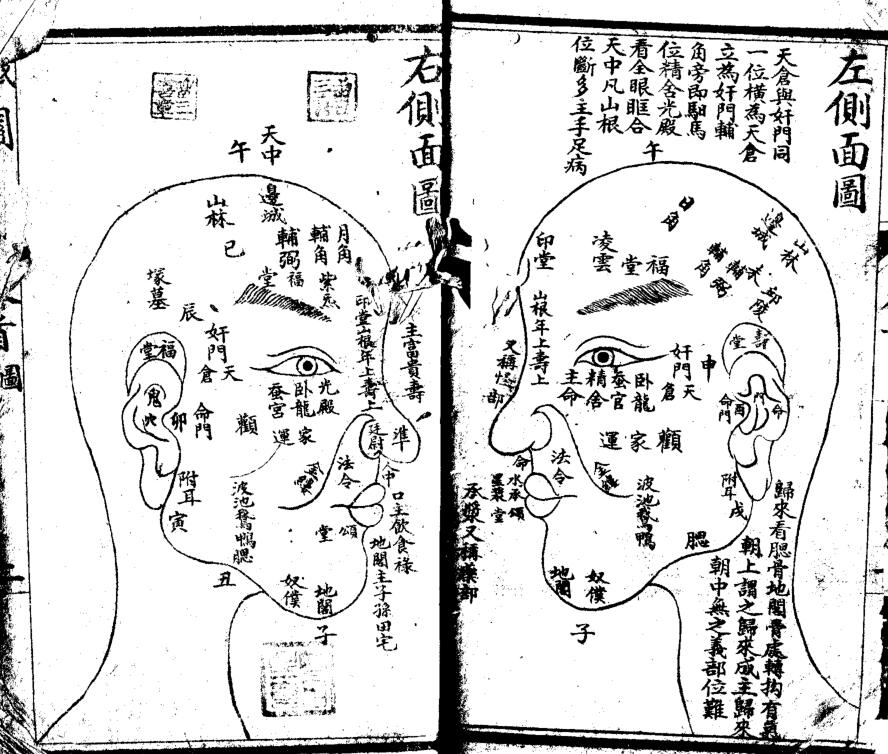 左側面圖
天倉與奸門同
一位橫為天倉
立為奸門輔
角旁即馹馬
位精舍光殿
看全眼眶合
天中凡山根
位斷多主手足病
午
日角
邊城
山林
凌雲
福堂
輔角
印堂
山根年上壽上
奸門
天倉
申
主命
精舍
蚕官
臥龍
命門
酉
顴
家
運
法令
命
水承頌
堂
波池鵞鴨
附耳
戌
腮
奴僕
地閣
子
歸來看腮骨地閣骨處轉抅有
朝上謂之歸來威主歸來
朝中無之義部位難
右側面圖
天中
午
邊城
山林
巳
月角
輔角
輔弼
福堂
塚墓
辰
奸門
天倉
印堂山根年上壽上
主富貴壽
福堂
光殿
臥龍
蚕宮
卯
命門
顴
家
運
準
廷尉
法令
人中
口主飲食祿
附耳
寅
波池鵞鴨腮
頌
堂
丑
奴僕
地閣
子
地閣主子孫田宅